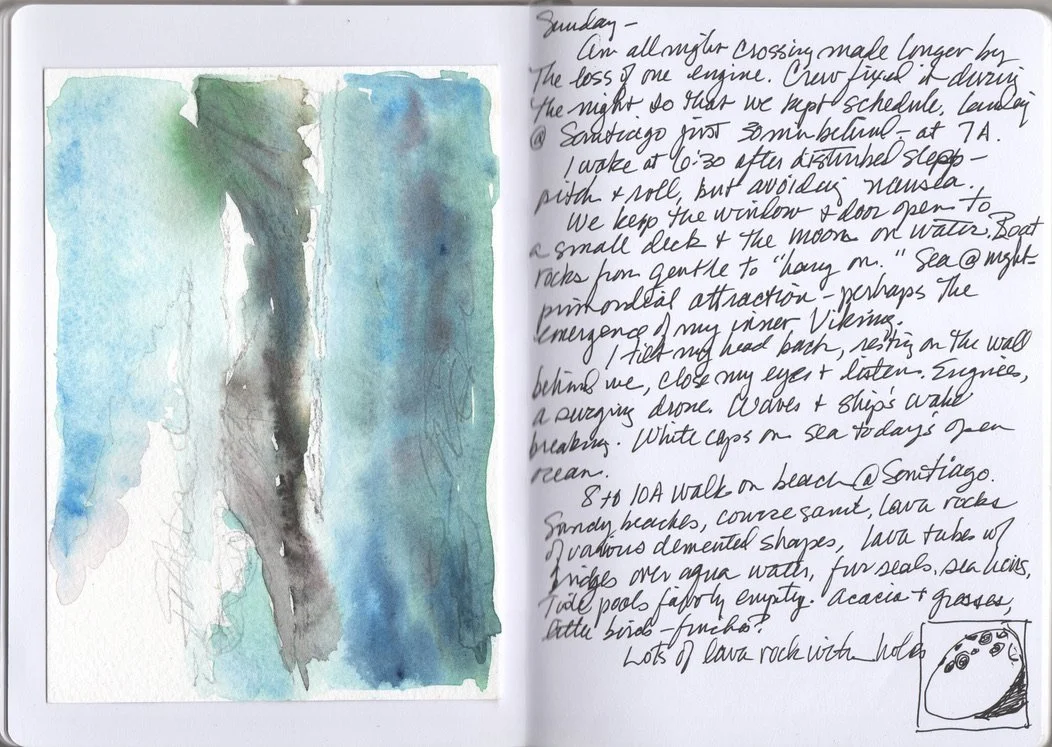 Sunday -
An all night crossing made longer by
the loss of one engine. Crew fixed it during
the night so that we kept schedule, landing
@ Santiago just 30 min behind - at 7A.
I wake at 6:30 after disturbed sleep -
pitch + roll, but avoiding nausea.
We keep the window + door open to
a small deck + the moon on water. Boat
rocks from gentle to "hang on." Sea @ night -
primordial attraction - perhaps the
emergence of my inner Viking.
I tilt my head back, resting on the wall
behind me, close my eyes + listen. Engines,
a surging drone. Waves + ship's wake
breaking. White caps on sea today's open
ocean.
8 to 10A walk on beach @ Santiago.
Sandy beaches, course sand, lava rocks
of various demented shapes, lava tubes w/
bridges over aqua water, fur seals, sea lions,
tide pools fairly empty. Acacia + grasses,
little birds - finches?
Lots of lava rock with holes